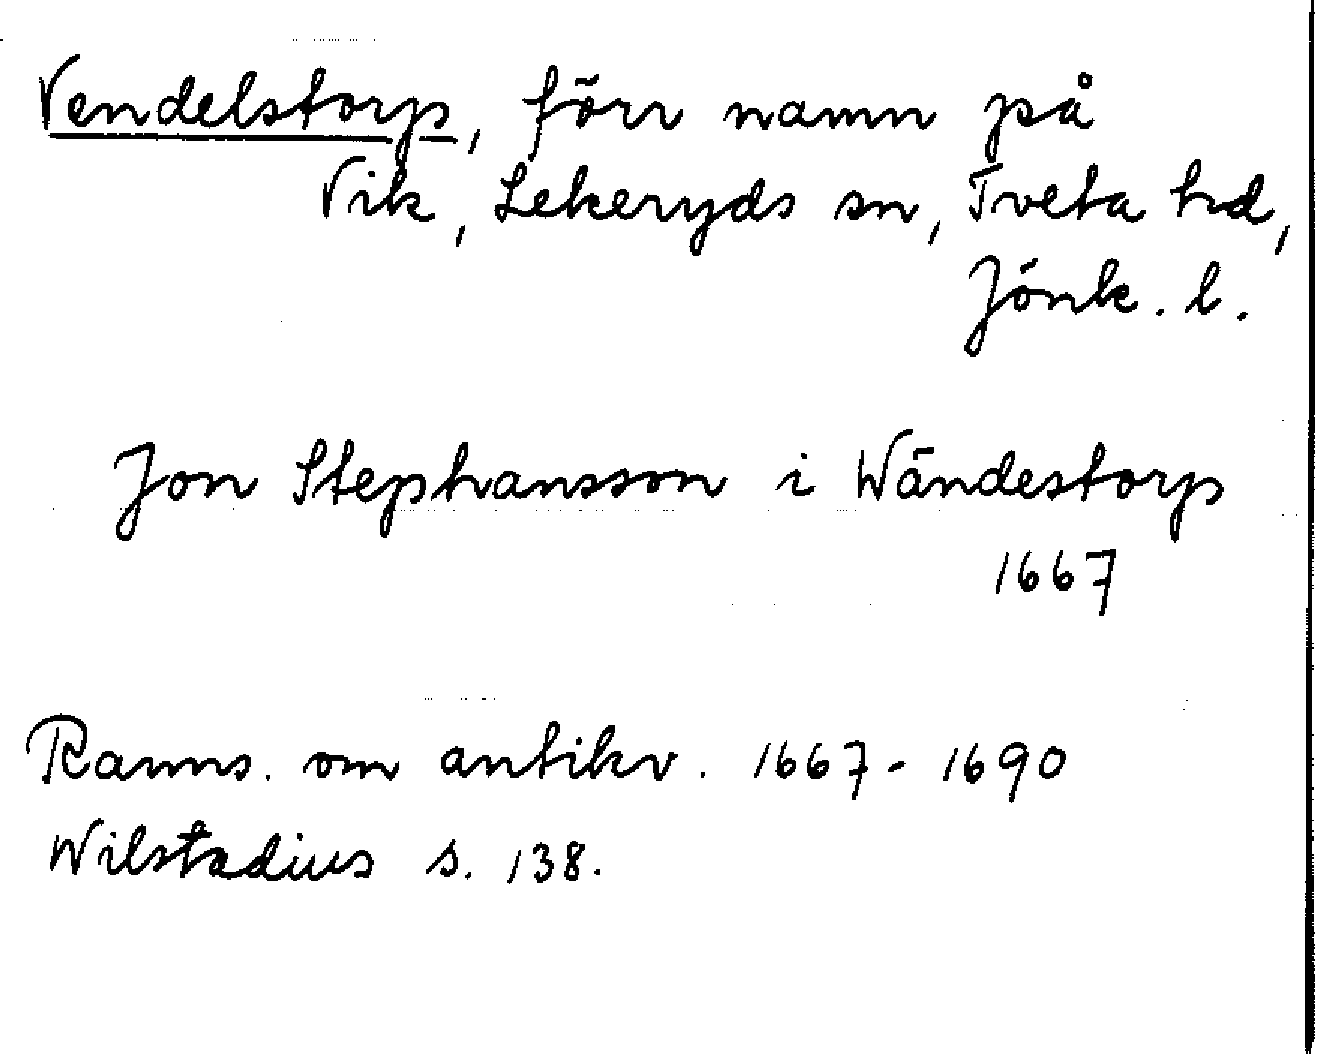 Vendelstorp, förr namn på
Vik, Lekeryds sn, Tveta hd,
Jönk. l.
Jon Stephansson i Wändestorp
1667
Ranns. om antikv. 1667-1690
Wilstadius s. 138.